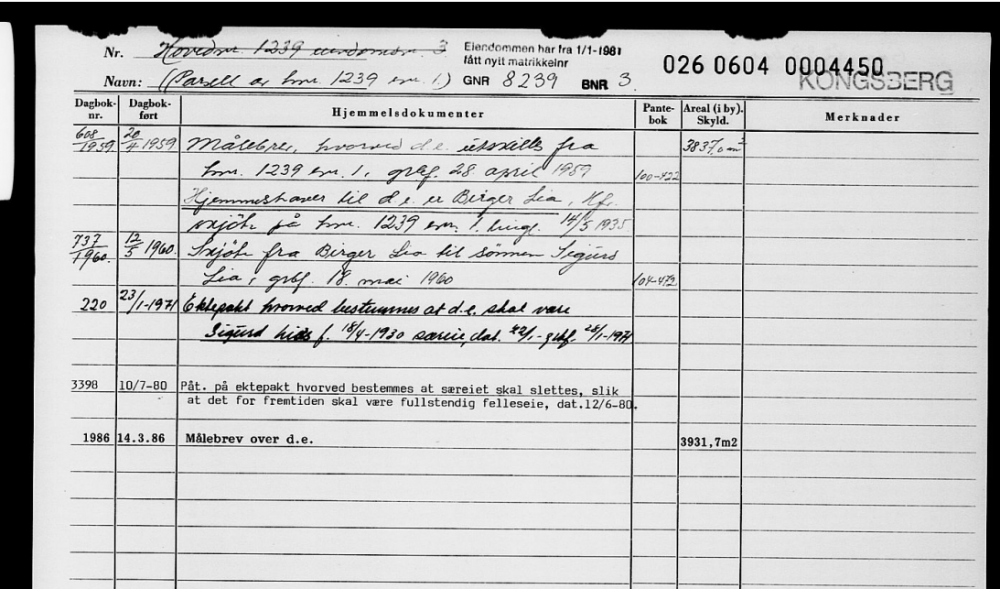 Nr. Hovednr. 1239 eiendomsnr. 3 Eiendommen har fra 1/1-1981
fått nytt matrikkelnr 026 0604 0004450
Navn: (Parsell av hnr. 1239 enr. 1) GNR 8239 BNR 3. KONGSBERG
Dagbok-nr. Dagbok-ført Hjemmelsdokumenter Pante-bok Areal (i by). Skyld. Merknader
608/1959 20/4 1959 Målebrev, hvorved d.e. utskilts fra 3837,0 m²
hnr. 1239 enr. 1, grbf. 28 april 1959 100-422
Hjemmelshaver til d.e. er Birger Lia, Hf.
skjöte på hnr. 1239 enr. 1. tingl. 14/5 1935
737/1960. 12/5 1960. Skjöte fra Birger Lia til sönnen Sigurd
Lia, grbf. 18. mai 1960 104-472
220 23/1-1971 Ektepakt hvorved bestemmes at d.e. skal være
Sigurd Lias f. 18/4-1930 særeie, dat. /1- gbf. 28/1-1971
3398 10/7-80 Påt. på ektepakt hvorved bestemmes at særeiet skal slettes, slik
at det for fremtiden skal være fullstendig felleseie, dat.12/6-80.
1986 14.3.86 Målebrev over d.e. 3931,7m2